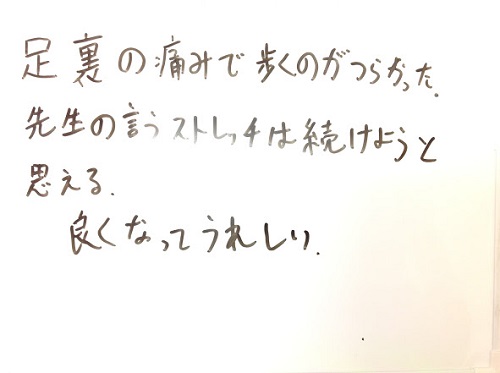 足裏の痛みで歩くのがつらかった.
先生の言うストレッチは続けようと
思える.
良くなってうれしい.